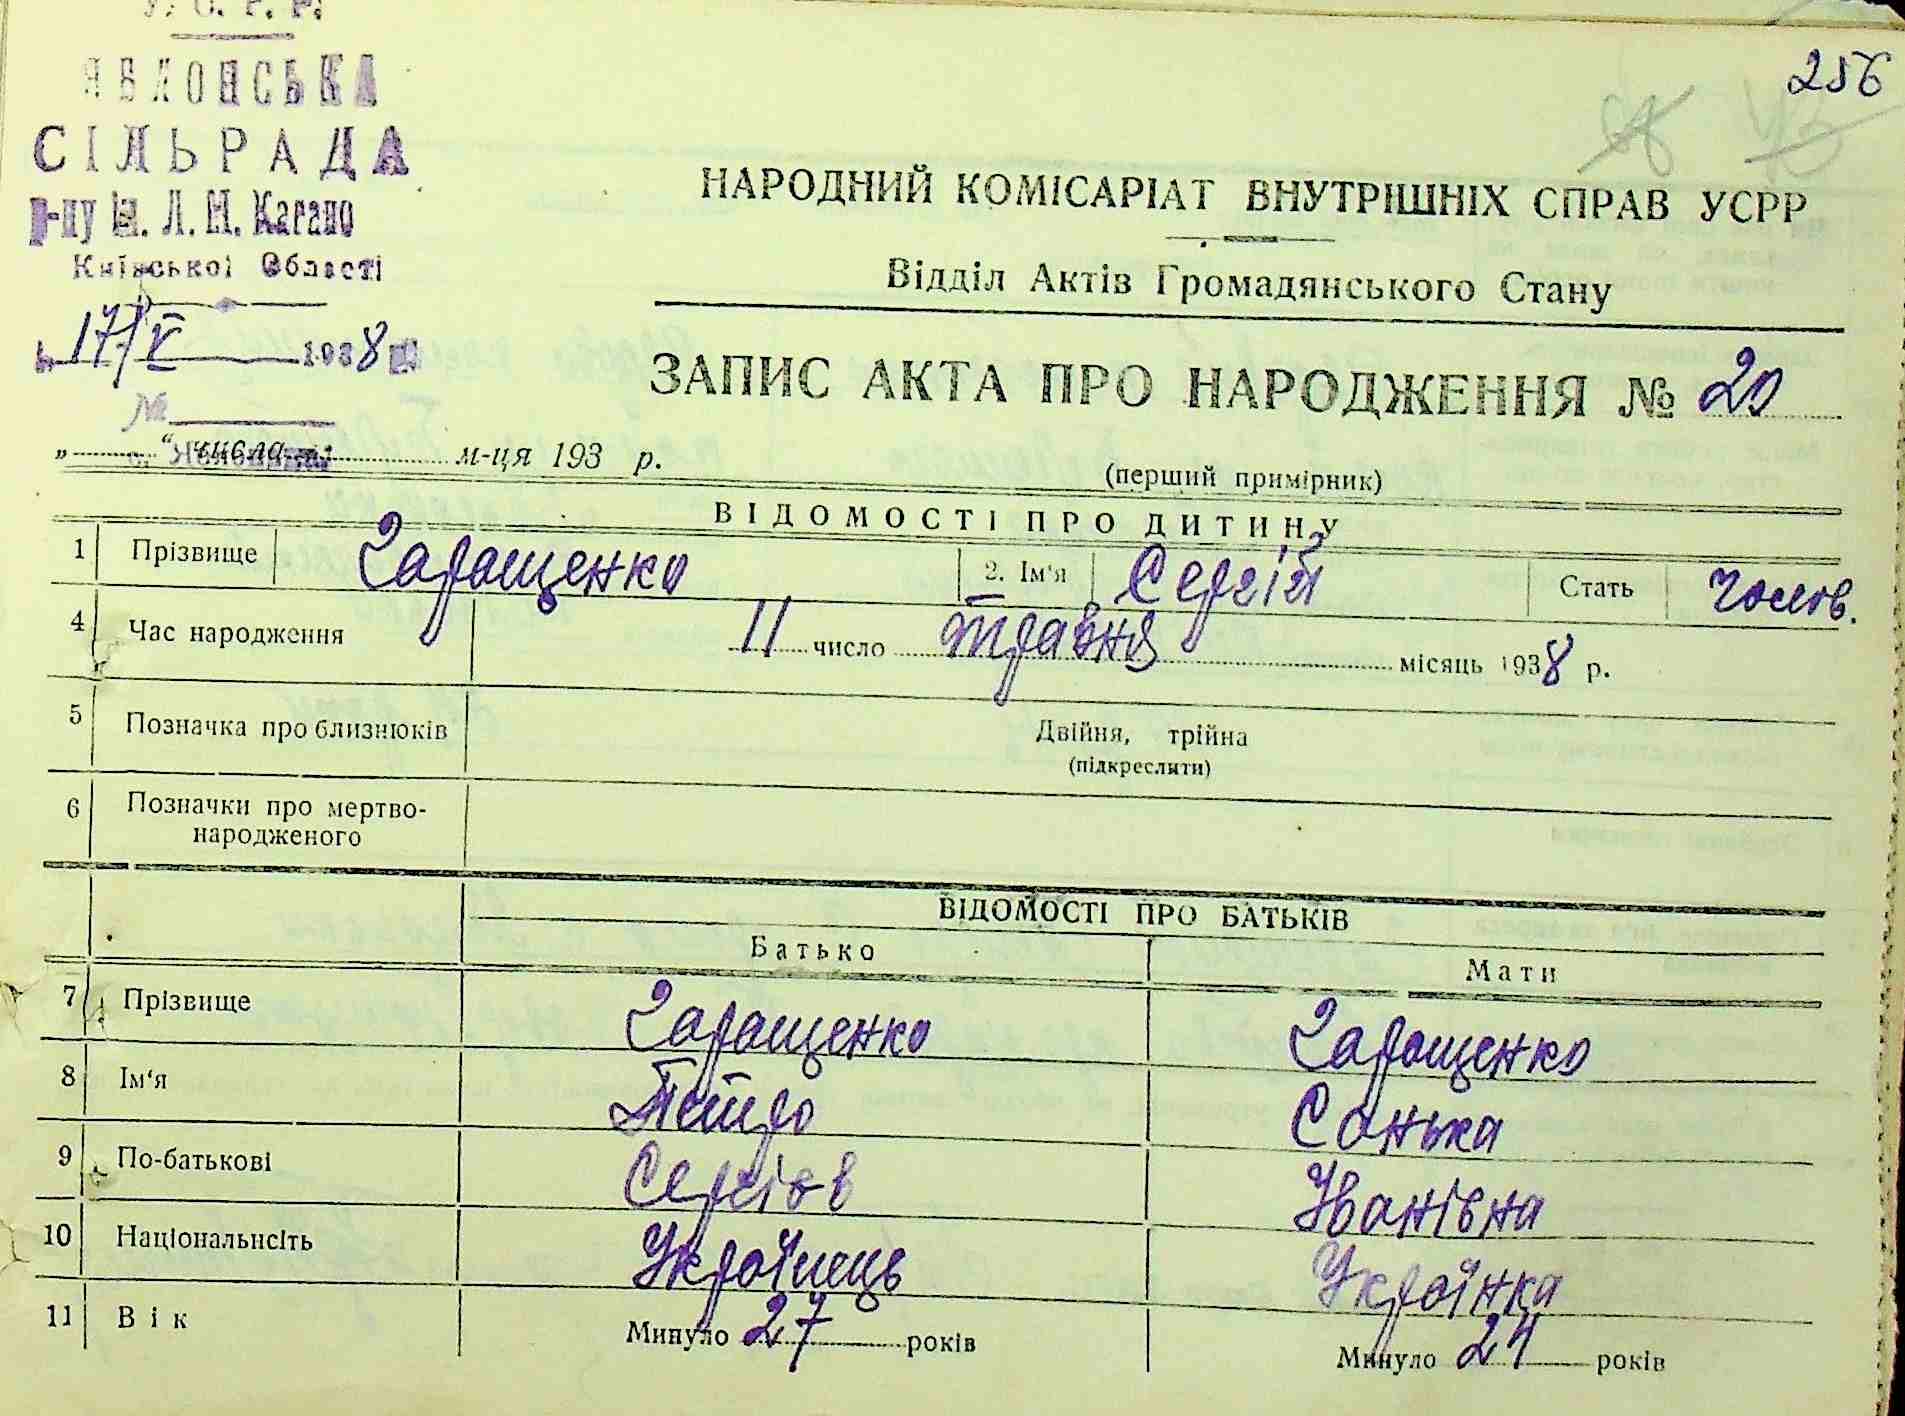 У. С. Р. Р.
ЯБЛОНСЬКА
СІЛЬРАДА
р-ну ім. Л. М. Кагано
Київської Області
17/V 1938
№
256
НАРОДНИЙ КОМІСАРІАТ ВНУТРІШНІХ СПРАВ УСРР
Відділ Актів Громадянського Стану
ЗАПИС АКТА ПРО НАРОДЖЕННЯ № 20
„ “ числа м-ця 193 р.
(перший примірник)
ВІДОМОСТІ ПРО ДИТИНУ
1 Прізвище Гаращенко 2. Ім'я Сергій Стать Чолов.
4 Час народження 11 число травня місяць 1938 р.
5 Позначка про близнюків Двійня, трійна
(підкреслити)
6 Позначки про мертво-
народженого
ВІДОМОСТІ ПРО БАТЬКІВ
Батько Мати
7 Прізвище Гаращенко Гаращенко
8 Ім'я Петро Санька
9 По-батькові Сергіов Іванівна
10 Національнсіть Українець Українка
11 Вік Минуло 27 років Минуло 24 років